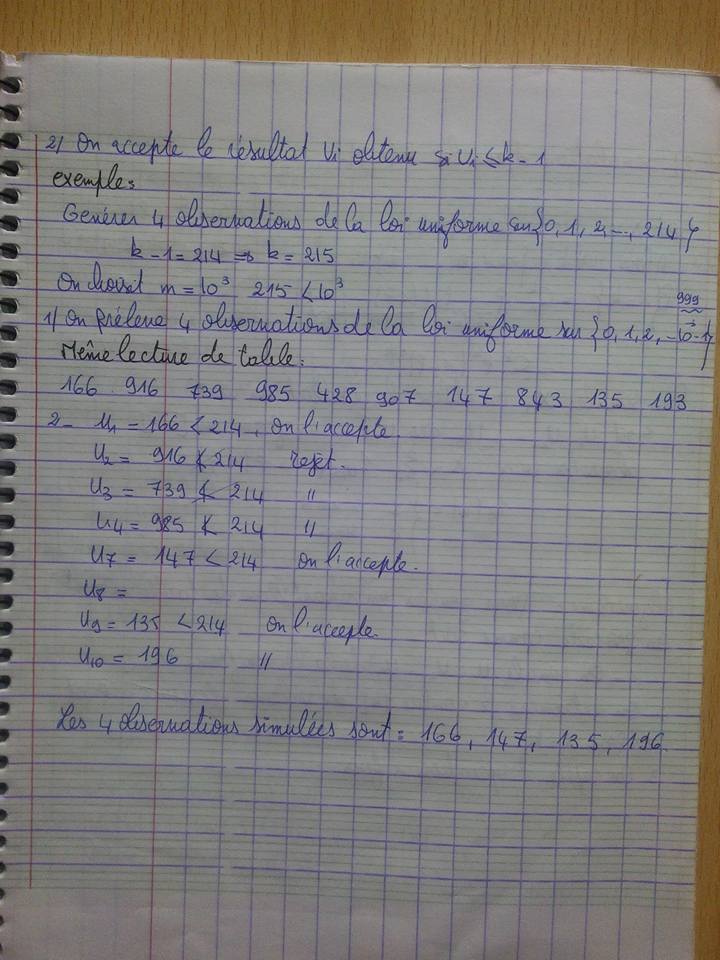 2) On accepte le résultat Ui obtenu si Ui ≤ k-1
exemple:
Générer 4 observations de la loi uniforme sur {0, 1, 2, ..., 214}
k-1 = 214 ⇒ k = 215
On choisit m = 10³ 215 < 10³
999
1) On prélève 4 observations de la loi uniforme sur {0, 1, 2, ... 10³-1}
Même lecture de table:
166 916 739 985 428 907 147 843 135 193
2- U1 = 166 < 214, on l'accepte
U2 = 916 ≮ 214 rejet.
U3 = 739 ≮ 214 "
U4 = 985 ≮ 214 "
U7 = 147 < 214 on l'accepte.
U8 =
U9 = 135 < 214 on l'accepte.
U10 = 196 "
Les 4 observations simulées sont: 166, 147, 135, 196